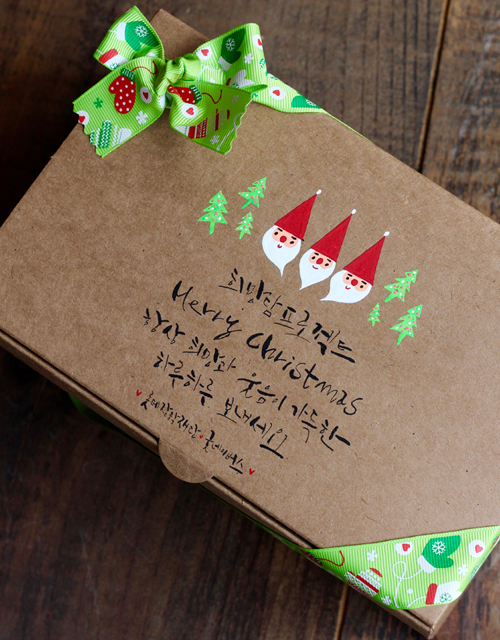 희망찬프로젝트
Merry Christmas
항상 희망과 웃음이 가득한
하루하루 보내세요
롯데장학재단